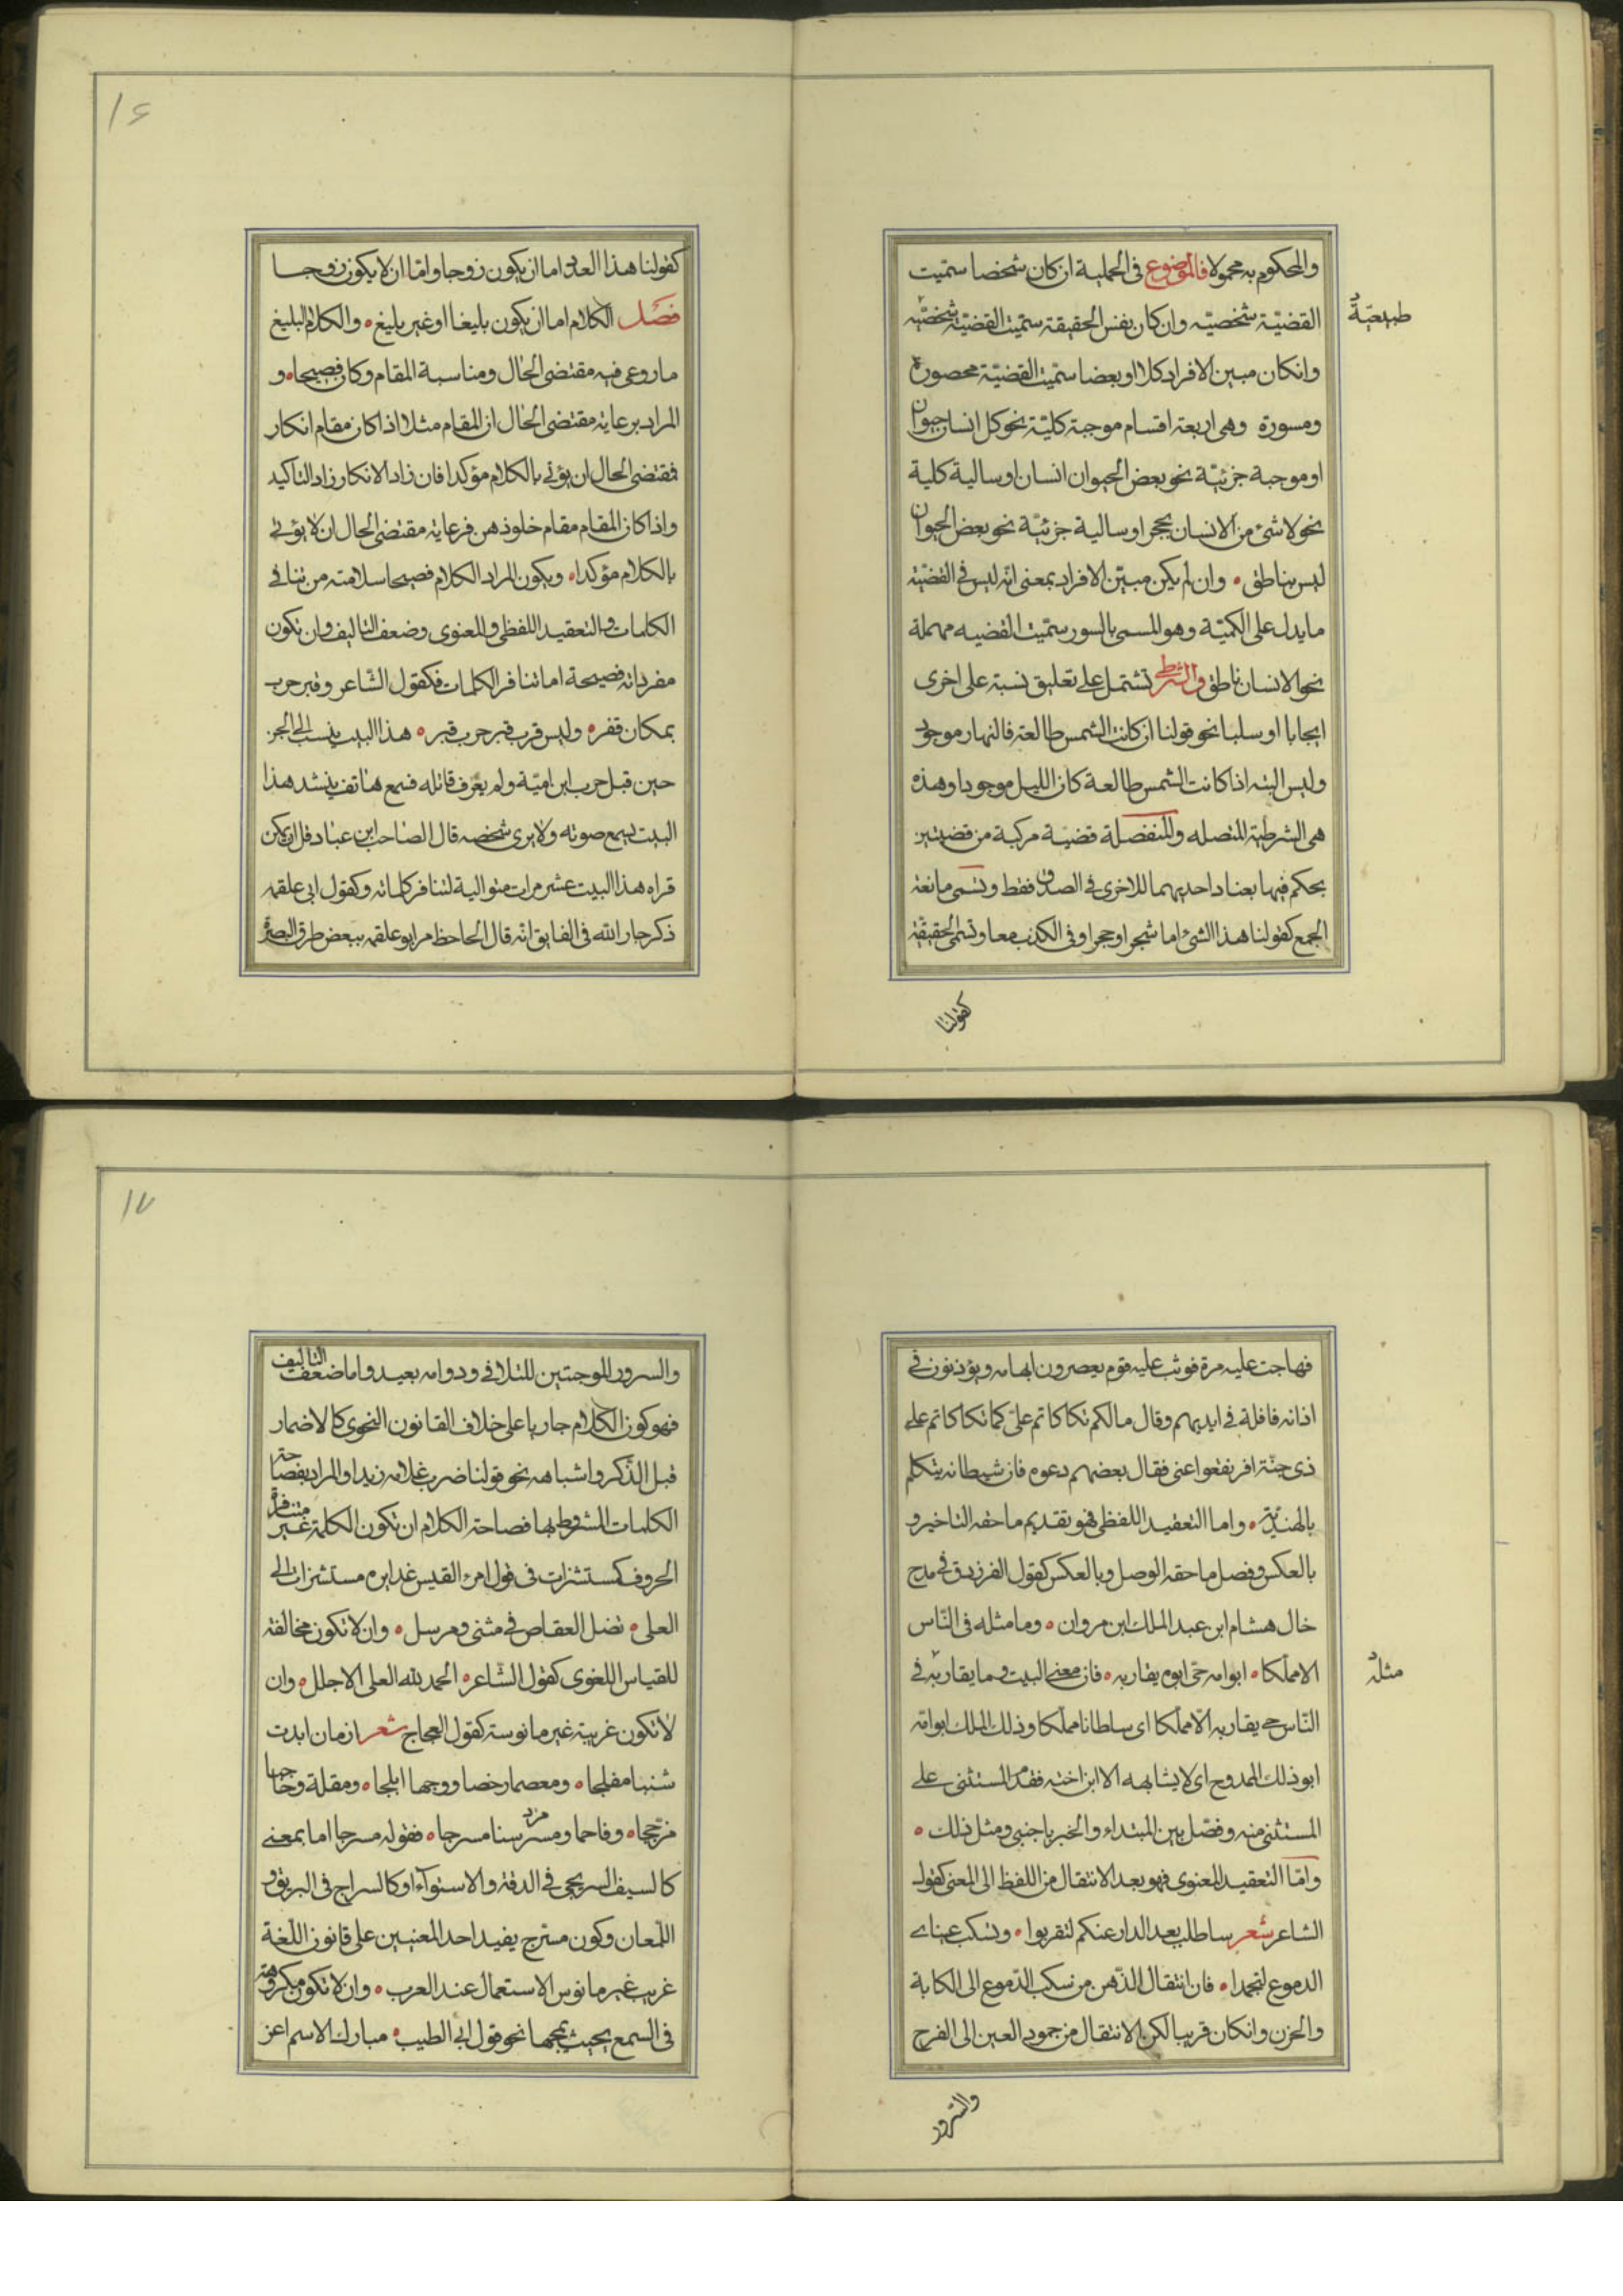 والمحكوم به محمولا فالموضوع في الحملية ان كان شخصا سمّيت
القضيّة شخصيّه وان كان نفس الحقيقة سمّيت القضيّة شخصيّه
طبيعيّة
وانكان مبين الافراد كلا او بعضا سمّيت القضيّة محصورة
ومسورة وهى اربعة اقسام موجبة كليّة نحو كل انسان حيوان
او موجبة جزئيّة نحو بعض الحيوان انسان او سالبة كلية
نحو لا شئ من الانسان بحجر او سالبة جزئيّة نحو بعض الحيوان
ليس بناطق ۰ وان لم يكن مبيّن الافراد بمعنى انّه ليس في القضيّة
ما يدل على الكميّة وهو المسمى بالسور سمّيت القضيه مهملة
نحو الانسان ناطق والشرطى تشتمل على تعليق نسبة على اخرى
ايجابا او سلبا نحو قولنا ان كانت الشمس طالعة فالنهار موجود
وليس البته اذا كانت الشمس طالعة كان الليل موجودا وهذه
هى الشرطية المتصله والمنفصلة قضيّة مركبة من قضيتين
يحكم فيها بعناد احديهما للاخرى في الصدق فقط وتسمى مانعة
الجمع كقولنا هذا الشئ اما شجر او حجر او في الكذب معا وتسمى الحقيقة
كقولنا
۱۶
كقولنا هذا العدد اما ان يكون زوجا وامّا ان لا يكون زوجا
فصل الكلام اما ان يكون بليغا او غير بليغ ۰ والكلام البليغ
ما روعى فيه مقتضى الحال ومناسبة المقام وكان فصيحا ۰ و
المراد برعاية مقتضى الحال ان المقام مثلا اذا كان مقام انكار
فمقتضى الحال ان يؤتى بالكلام مؤكدا فان زاد الانكار زاد التاكيد
واذا كان المقام مقام خلو ذهن فرعاية مقتضى الحال ان لا يؤتى
بالكلام مؤكدا ۰ ويكون المراد الكلام فصيحا سلامته من تنافى
الكلمات والتعقيد اللفظى والمعنوى وضعف التاليف وان تكون
مفرداته فصيحة اما تنافر الكلمات فكقول الشاعر وقبر حرب
بمكان قفر ۰ وليس قرب قبر حرب قبر ۰ هذا البيت ينسب الى الجن
حين قبل حرب ابن اميّة ولم يعرف قائله فسمع هاتف ينشد هذا
البيت يسمع صوته ولا يرى شخصه قال الصاحب ابن عباد فل ان يمكن
قراه هذا البيت عشر مرات متوالية لتنافر كلماته وكقول ابى علقمه
ذكر جار الله في الفايق انّه قال الجاحظ مر ابو علقمه ببعض طرق البصرة
فهاجت عليه مرة فوثب عليه قوم يعصرون ابهامه ويؤذنون في
اذانه فافلة في ايديهم وقال مالكم تكاكاتم علىّ كما تكاكاتم على
ذى جنّة افرنقعوا عنى فقال بعضهم دعوه فان شيطانه يتكلم
بالهنديّة ۰ واما التعقيد اللفظى فهو بتقديم ما حقه التاخير و
بالعكس وفصل ما حقه الوصل وبالعكس كقول الفرزدق في مدح
خال هشام ابن عبد الملك ابن مروان ۰ وما مثله في النّاس
الا مملّكا ۰ ابو امه حىّ ابوه يقاربه ۰ فان معنى البيت وما يقاربه في
مثله
النّاس حى يقاربه الّا مملّكا اى سلطانا مملّكا وذلك الملك ابو امّه
ابو ذلك الممدوح اى لا يشابهه الا ابن اخته فقدّم المستثنى على
المستثنى منه وفصل بين المبتداء والخبر باجنبى ومثل ذلك ۰
وامّا التعقيد المعنوى فهو بعد الانتقال من اللفظ الى المعنى كقول
الشاعر شعر ساطلب بعد الدار عنكم لتقربوا ۰ وتسكب عيناى
الدموع لتجمدا ۰ فان انتقال الذّهن من سكب الدّموع الى الكابة
والحزن وانكان قريبا لكن الانتقال من جمود العين الى الفرح
والسرور
۱۷
والسرور الموجبتين للتلاقى ودوامه بعيد واما ضعف التاليف
فهو كون الكلام جاريا على خلاف القانون النحوى كالاضمار
قبل الذّكر واشباهه نحو قولنا ضرب غلامه زيدا والمراد بفصاحة
الكلمات المشروط بها فصاحة الكلام ان تكون الكلمة غير متنافرة
الحروف كمستشزرات في قول امرء القيس غدايره مستشزرات الى
العلى ۰ تضل العقاص في مثنى ومرسل ۰ وان لا تكون مخالفة
للقياس اللغوى كقول الشّاعر ۰ الحمد لله العلى الاجلل ۰ وان
لا تكون غريبة غير مانوسة كقول العجاج شعر ازمان ابدت
شنبا مفلجا ۰ ومعصما رخصا ووجها ابلجا ۰ ومقلة وحاجبا
مزججا ۰ وفاحما ومسرسنا مسرجا ۰ فقوله مسرجا اما بمعنى
كالسيف السريجى في الدقة والاستوآء او كالسراج في البريق و
اللّمعان وكون مسرج يفيد احد المعنيين على قانون اللّغة
غريب غير مانوس الاستعمال عند العرب ۰ وان لا تكون مكروهة
في السمع بحيث يمجها نحو قول ابى الطيب ۰ مبارك الاسم اعز